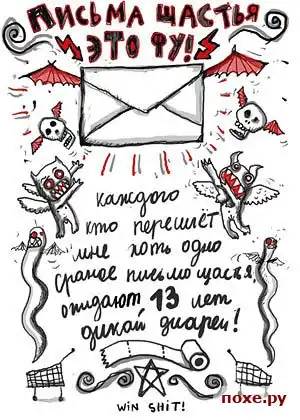 ПИСЬМА ЩАСТЬЯ
ЭТО ФУ!
каждого
кто перешлёт
мне хоть одно
сраное письмо щастья,
ожидают 13 лет
дикой диареи!
WIN SHIT!
похе.ру